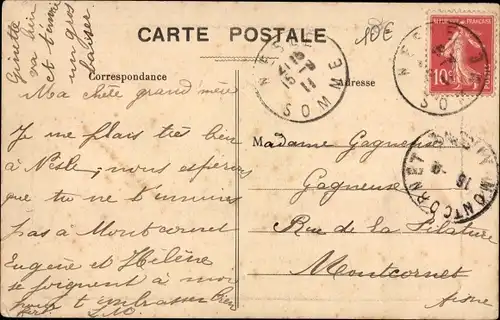 Ginette
va bien
et t'envoie
un gros
baiser
CARTE POSTALE
10€
RÉPUBLIQUE FRANÇAISE
10
NESLE
SOMME
15
11
NESLE
SOMME
Correspondance
Adresse
Ma chère grand'mère
Je me plais très bien
à Nesle, nous espérons
que tu ne t'ennuies
pas à Montcornet
Eugène et Hélène
se joignent à moi
pour t'embrasser bien
fort
Madame Gagneuse
Gagneuse
Rue de la Filature
Montcornet
Aisne
MONTCORNET
AISNE
15